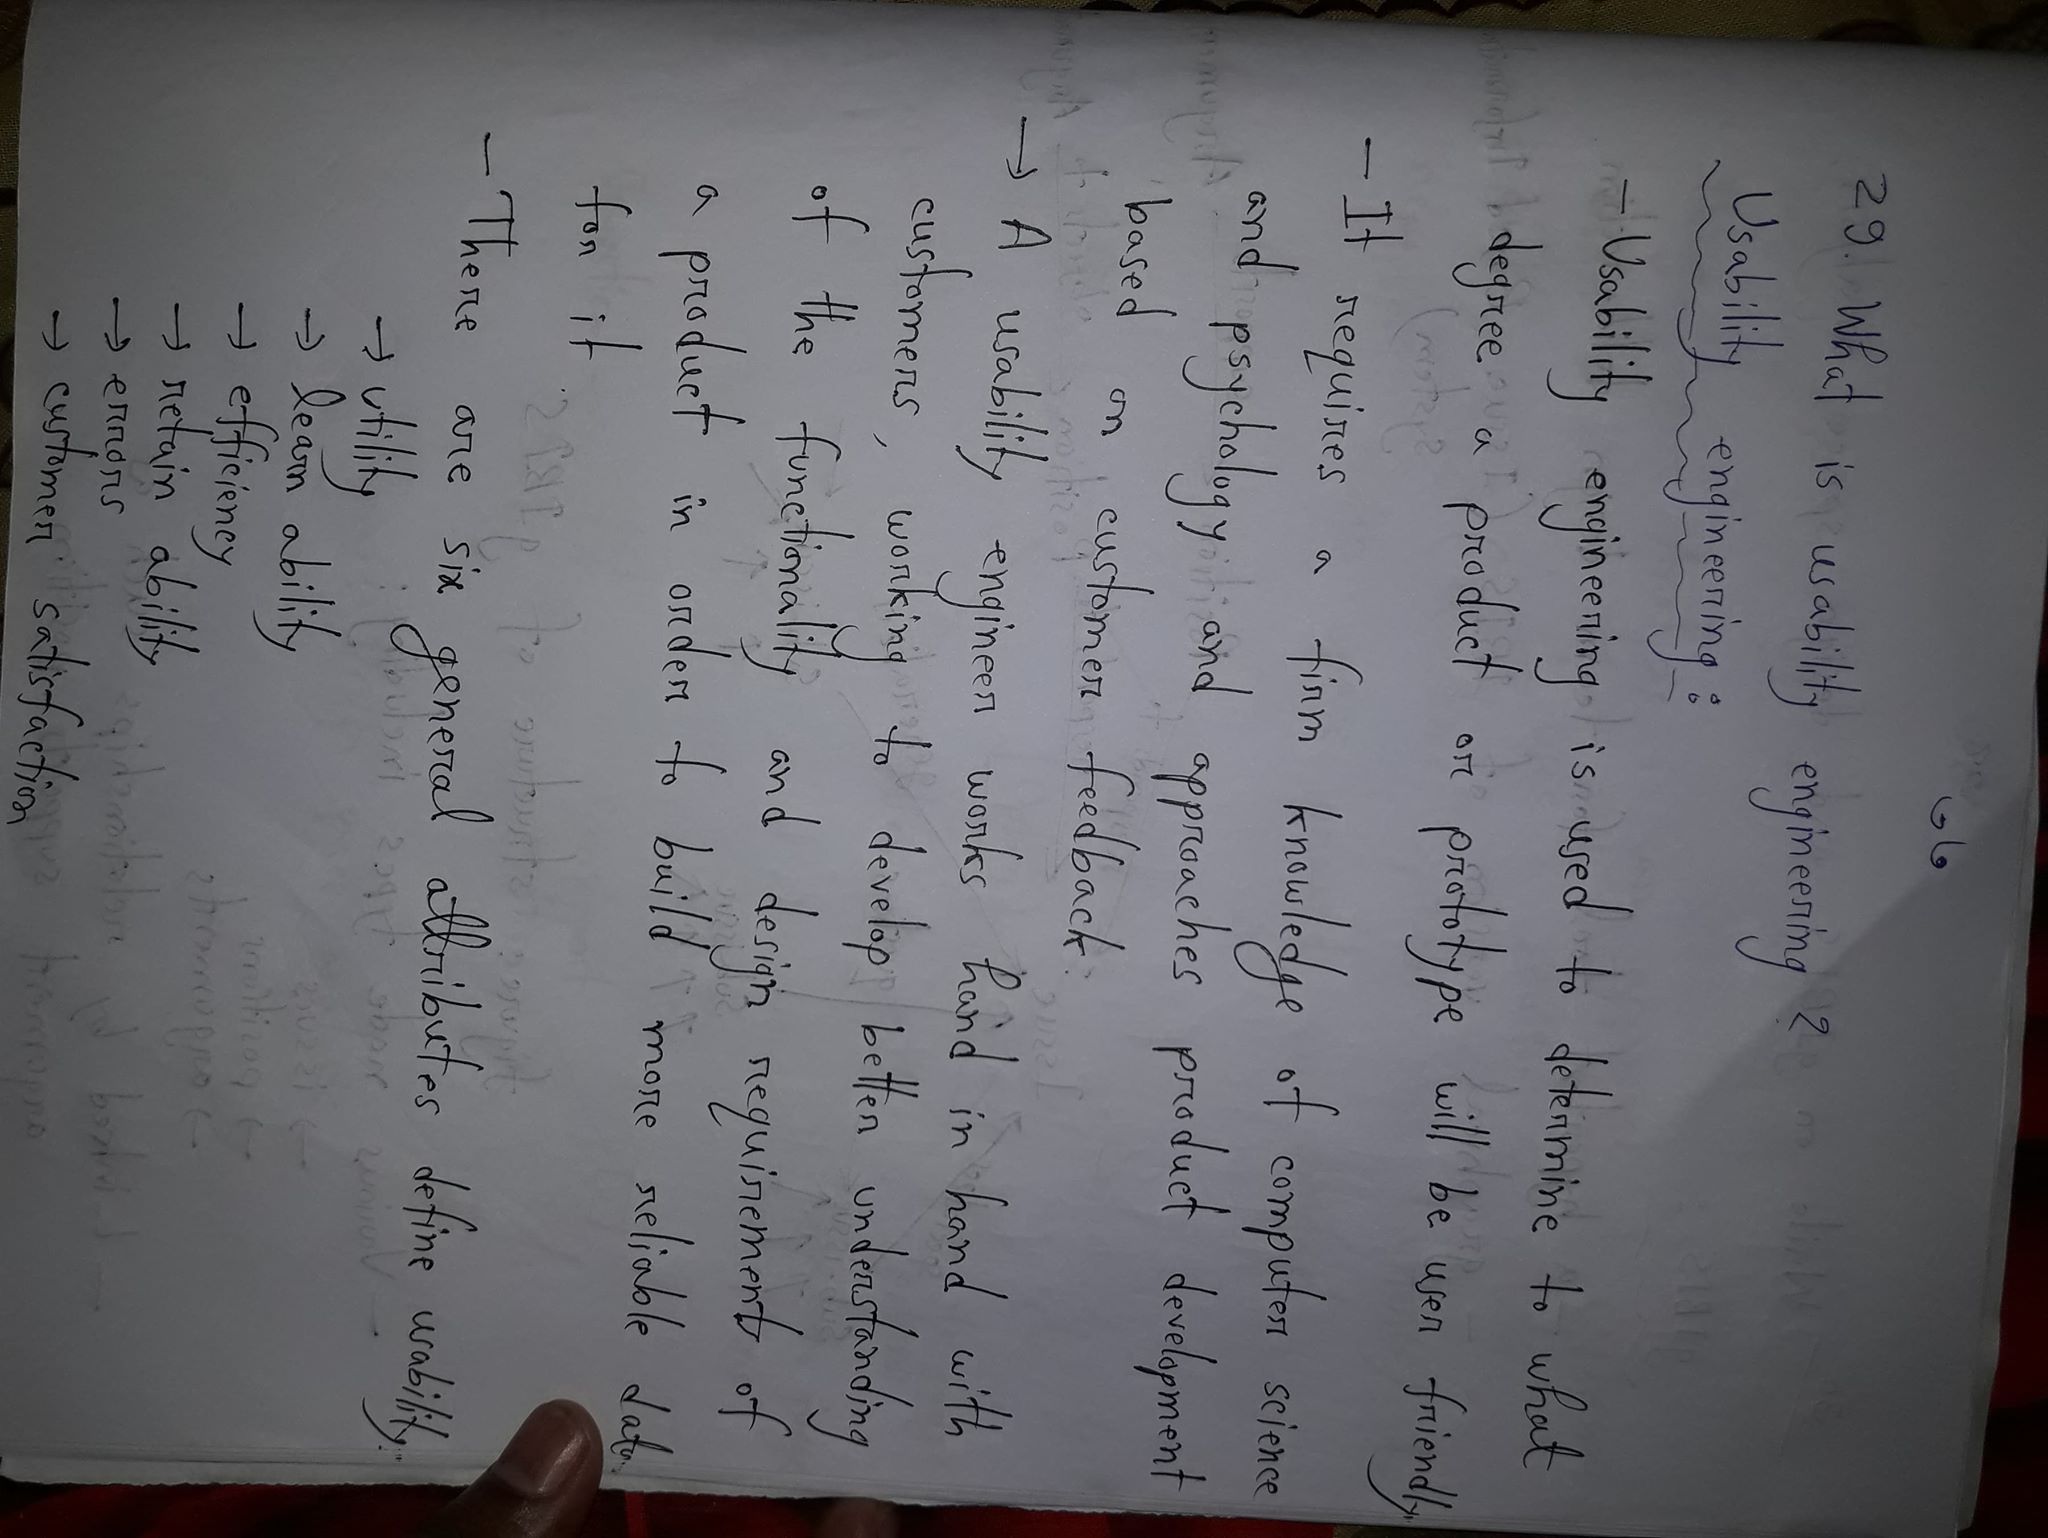 ৩৬
29. What is usability engineering ?
Usability engineering :
- Usability engineering is used to determine to what
degree a product or prototype will be user friendly.
- It requires a firm knowledge of computer science
and psychology and approaches product development
based on customer feedback.
→ A usability engineer works hand in hand with
customers, working to develop better understanding
of the functionality and design requirements of
a product in order to build more reliable data
for it.
- There are six general attributes define usability.
→ utility
→ learn ability
→ efficiency
→ retain ability
→ errors
→ customer satisfaction